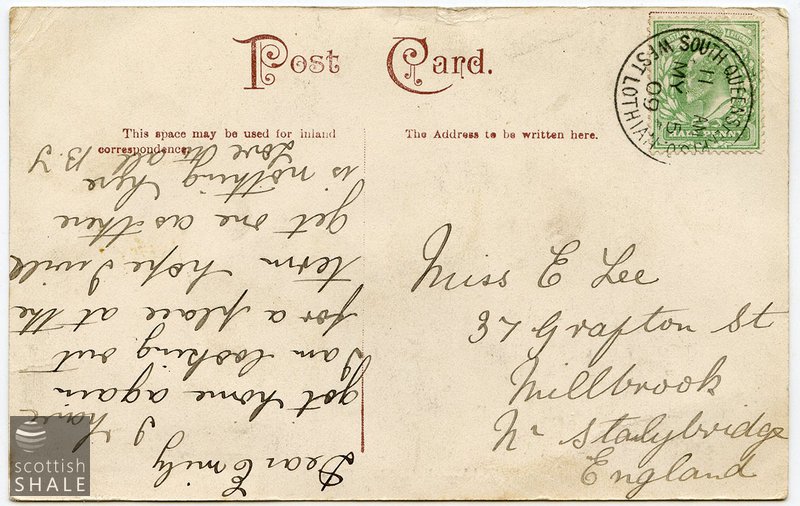 Post Card.
This space may be used for inland
correspondence.
The Address to be written here.
SOUTH QUEENS
11 AM
MY 5
09
WEST LOTHIAN
HALF PENNY
Dear Emily
I have
got home again
I am looking out
for a place at the
term hope I will
get one as there
is nothing here
Love to all B. J
Miss E Lee
37 Grafton St
Millbrook
Nr Stalybridge
England
scottish
SHALE